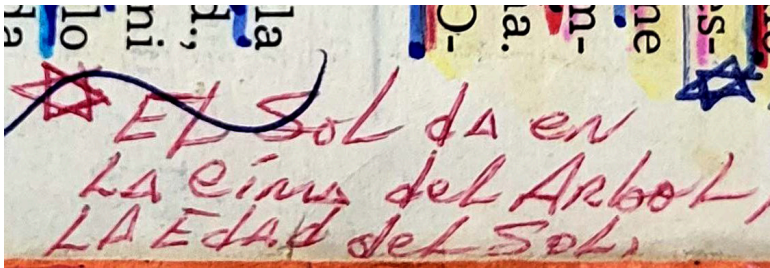 EL SoL dA en
LA Cima del ArboL,
LA EdAd deL SoL,